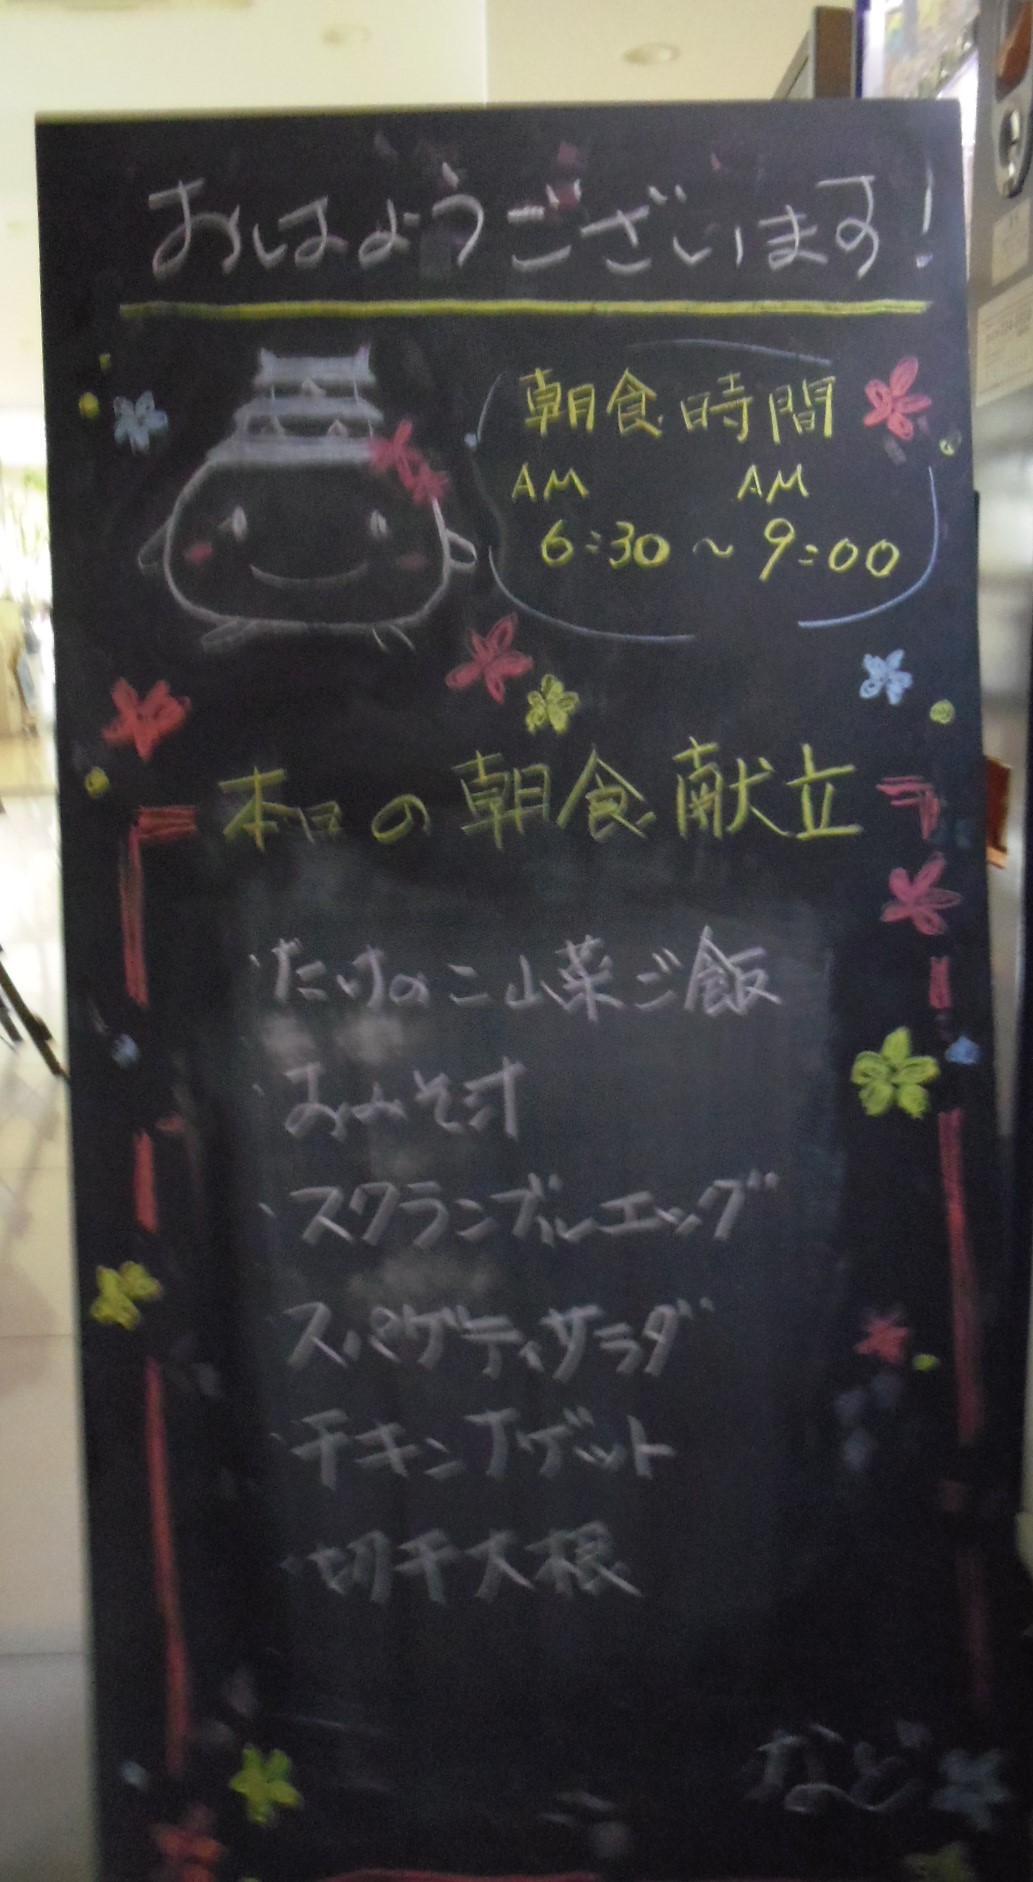 おはようございます!
朝食時間
AM AM
6:30～9:00
本日の朝食献立
・たけのこ山菜ご飯
・おみそ汁
・スクランブルエッグ
・スパゲティサラダ
・チキンナゲット
・切干大根
など